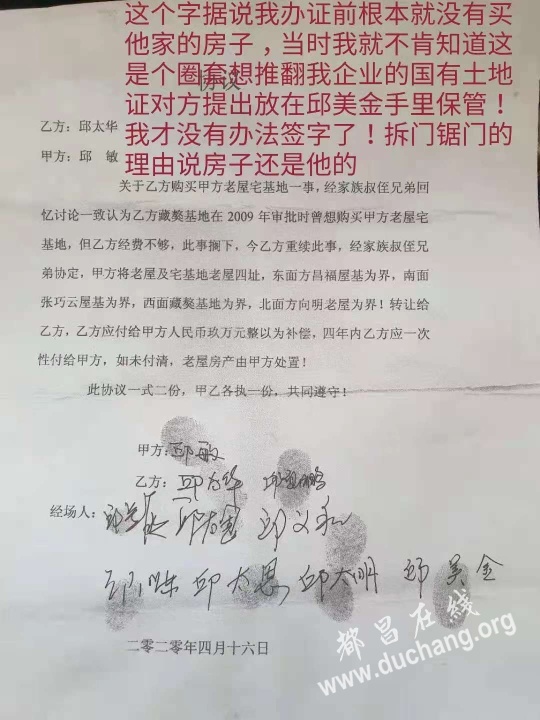 这个字据说我办证前根本就没有买
他家的房子，当时我就不肯知道这
是个圈套想推翻我企业的国有土地
证对方提出放在邱美金手里保管！
我才没有办法签字了！拆门锯门的
理由说房子还是他的
协议
乙方：邱太华
甲方：邱 敏
关于乙方购买甲方老屋宅基地一事，经家族叔侄兄弟回
忆讨论一致认为乙方藏獒基地在 2009 年审批时曾想购买甲方老屋宅
基地，但乙方经费不够，此事搁下，今乙方重续此事，经家族叔侄兄
弟协定，甲方将老屋及宅基地老屋四址，东面方昌福屋基为界，南面
张巧云屋基为界，西面藏獒基地为界，北面方向明老屋为界！转让给
乙方，乙方应付给甲方人民币玖万元整以为补偿，四年内乙方应一次
性付给甲方，如未付清，老屋房产由甲方处置！
此协议一式二份，甲乙各执一份，共同遵守！
甲方：邱敏
乙方：邱太华
经场人： 邱义和
邱太恩 邱太明 邱美金
二零二零年四月十六日
都昌在线
www.duchang.org